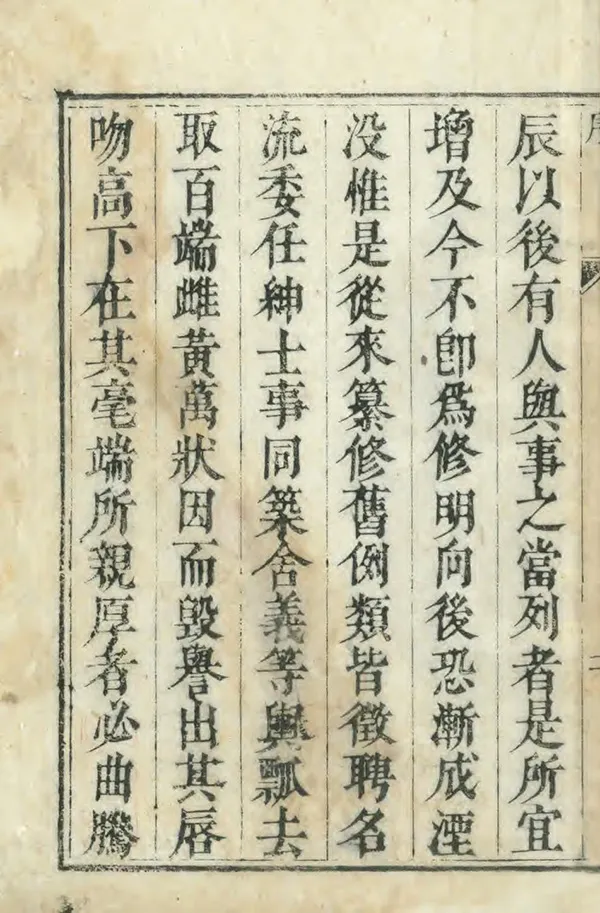 辰以後有人與事之當列者是所宜
增及今不卽爲修明向後恐漸成湮
没惟是從來纂修舊例類皆徵聘名
流委任紳士事同築舍義等輿瓢去
取百端雌黃萬狀因而毀譽出其唇
吻高下在其毫端所親厚者必曲騰